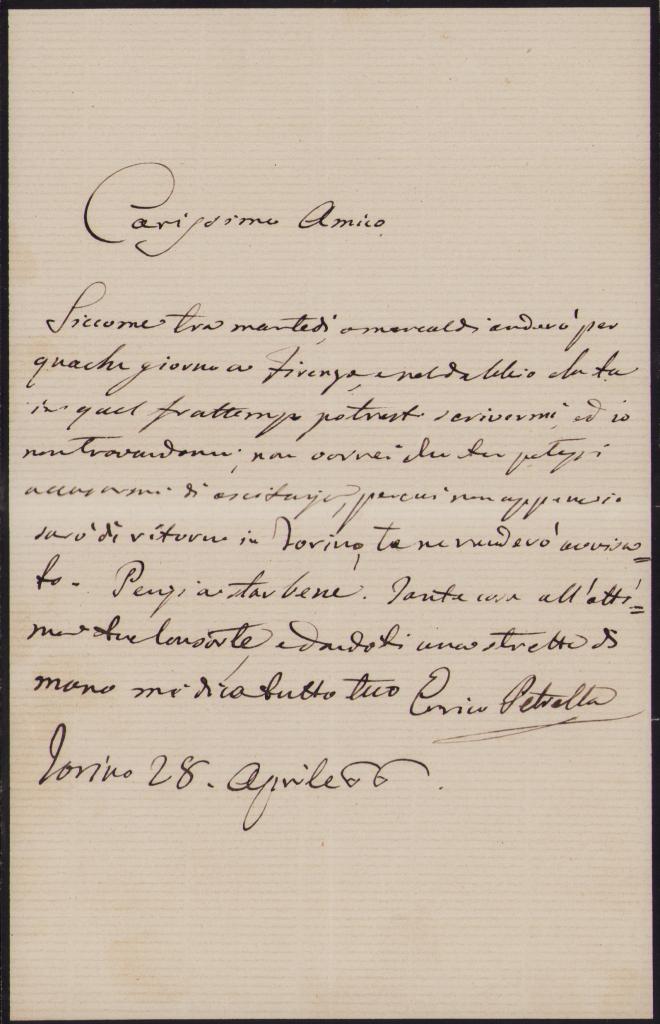 Carissimo Amico
Siccome tra martedi, o mercoldi anderò per
quache giorno a Firenze, e nel dubbio che tu
in quel frattempo potresti scrivermi, ed io
non trovandomi, non vorrei che tu potessi
accusarmi di, perciò non appena io
sarò di ritorno in Torino, te ne renderò avvisa=
to. Pensi a star bene. Tante cose all'otti=
ma tua Consorte, e dandoti una stretta di
mano mi dico tutto tuo Errico Petrella
Torino 28. Aprile 66.